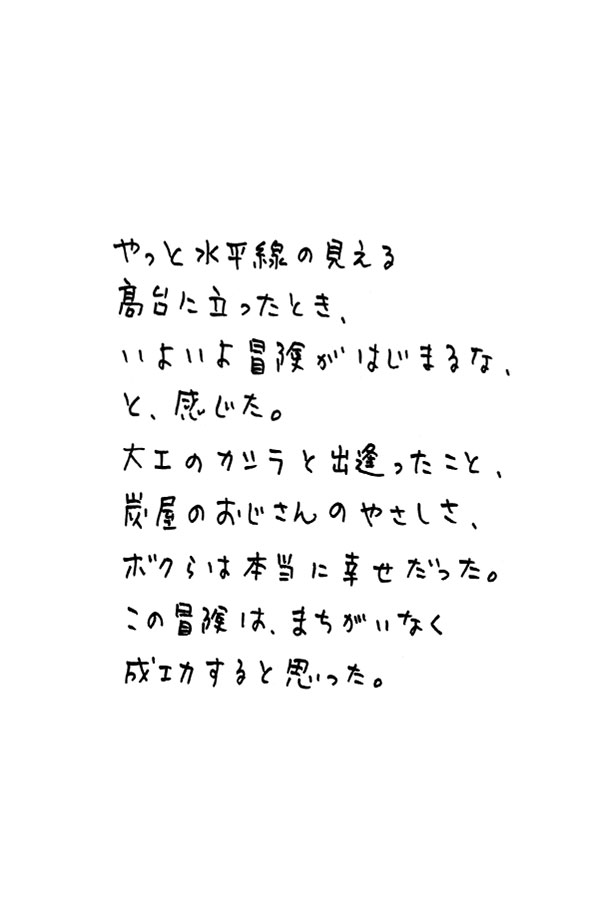 やっと水平線の見える
高台に立ったとき、
いよいよ冒険がはじまるな、
と、感じた。
大工のカシラと出逢ったこと、
炭屋のおじさんのやさしさ、
ボクらは本当に幸せだった。
この冒険は、まちがいなく
成功すると思った。